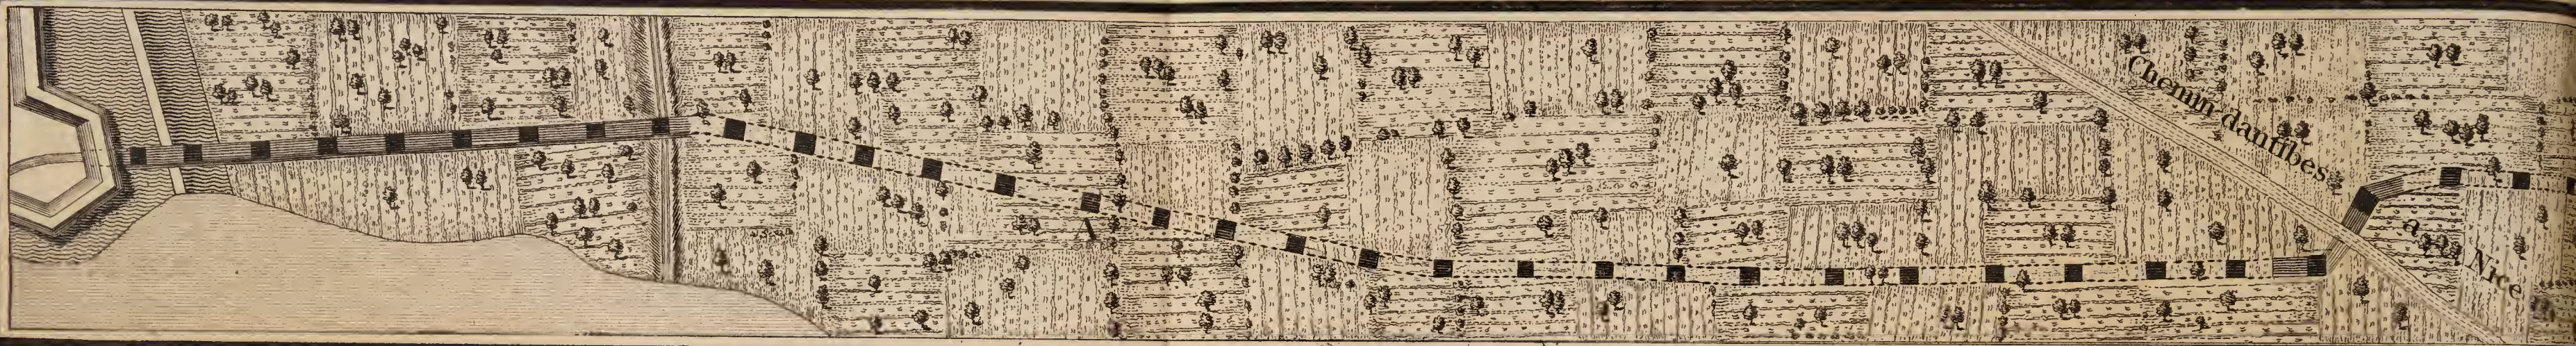 Chemin dantibes
a Nice
A